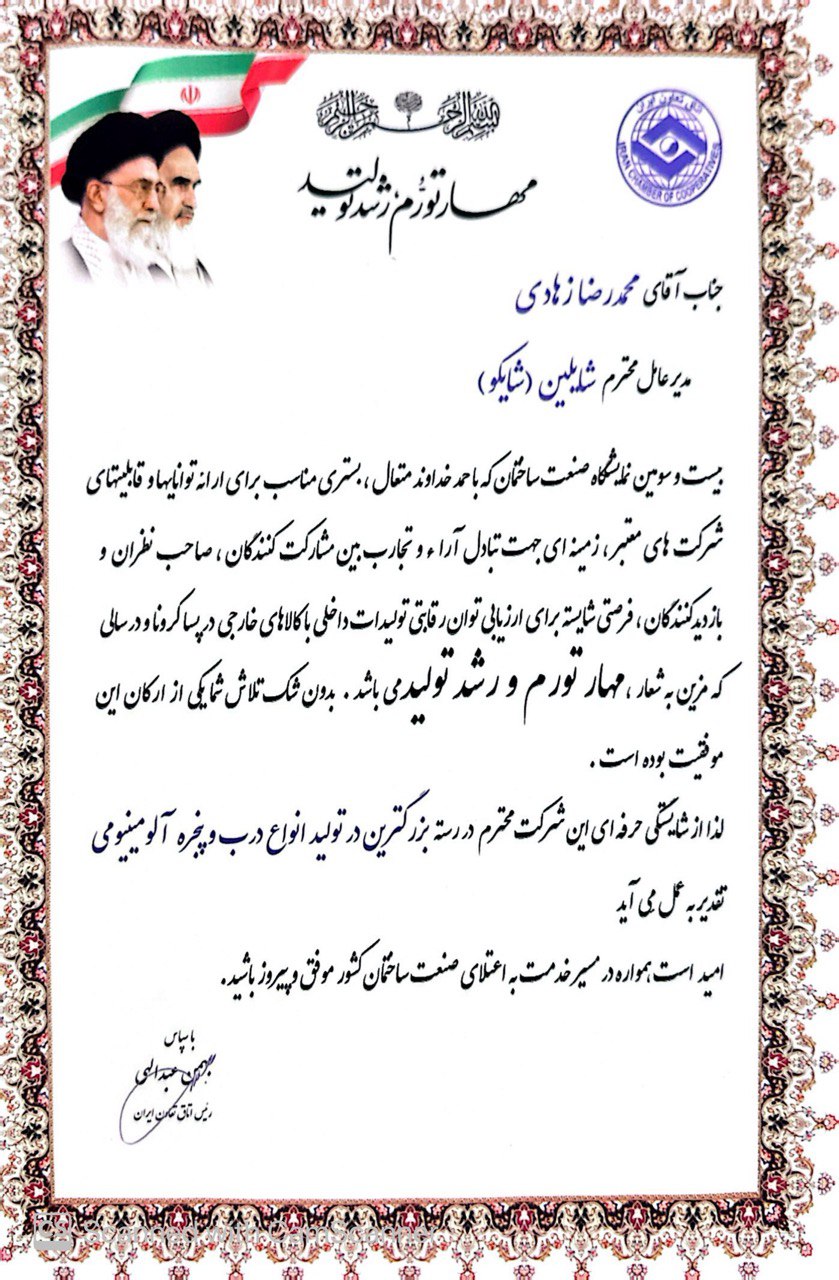 بسم الله الرحمن الرحیم
اتاق تعاون ایران
IRAN CHAMBER OF COOPERATIVES
مهار تورم، رشد تولید
جناب آقای محمدرضا زهادی
مدیر عامل محترم شایلین (شایکو)
بیست و سومین نمایشگاه صنعت ساختمان که با حمد خداوند متعال ، بستری مناسب برای ارائه توانایها و قابلیتهای
شرکت های معتبر ، زمینه ای جهت تبادل آراء و تجارب بین مشارکت کنندگان ، صاحب نظران و
بازدیدکنندگان ، فرصتی شایسته برای ارزیابی توان رقابتی تولیدات داخلی با کالاهای خارجی در پسا کرونا و در سالی
که مزین به شعار ، مهار تورم و رشد تولید می باشد . بدون شک تلاش شما یکی از ارکان این
موفقیت بوده است .
لذا از شایستگی حرفه ای این شرکت محترم در رسته بزرگترین در تولید انواع درب و پنجره آلومینیومی
تقدیر به عمل می آید
امید است همواره در مسیر خدمت به اعتلای صنعت ساختمان کشور موفق و پیروز باشید .
با سپاس
بهمن عبدالهی
رئیس اتاق تعاون ایران
Scanned with CamScanner